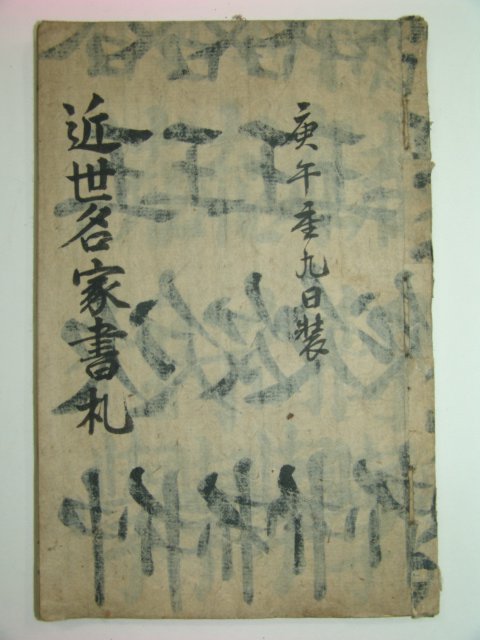 庚午重九日裝
近世名家書札